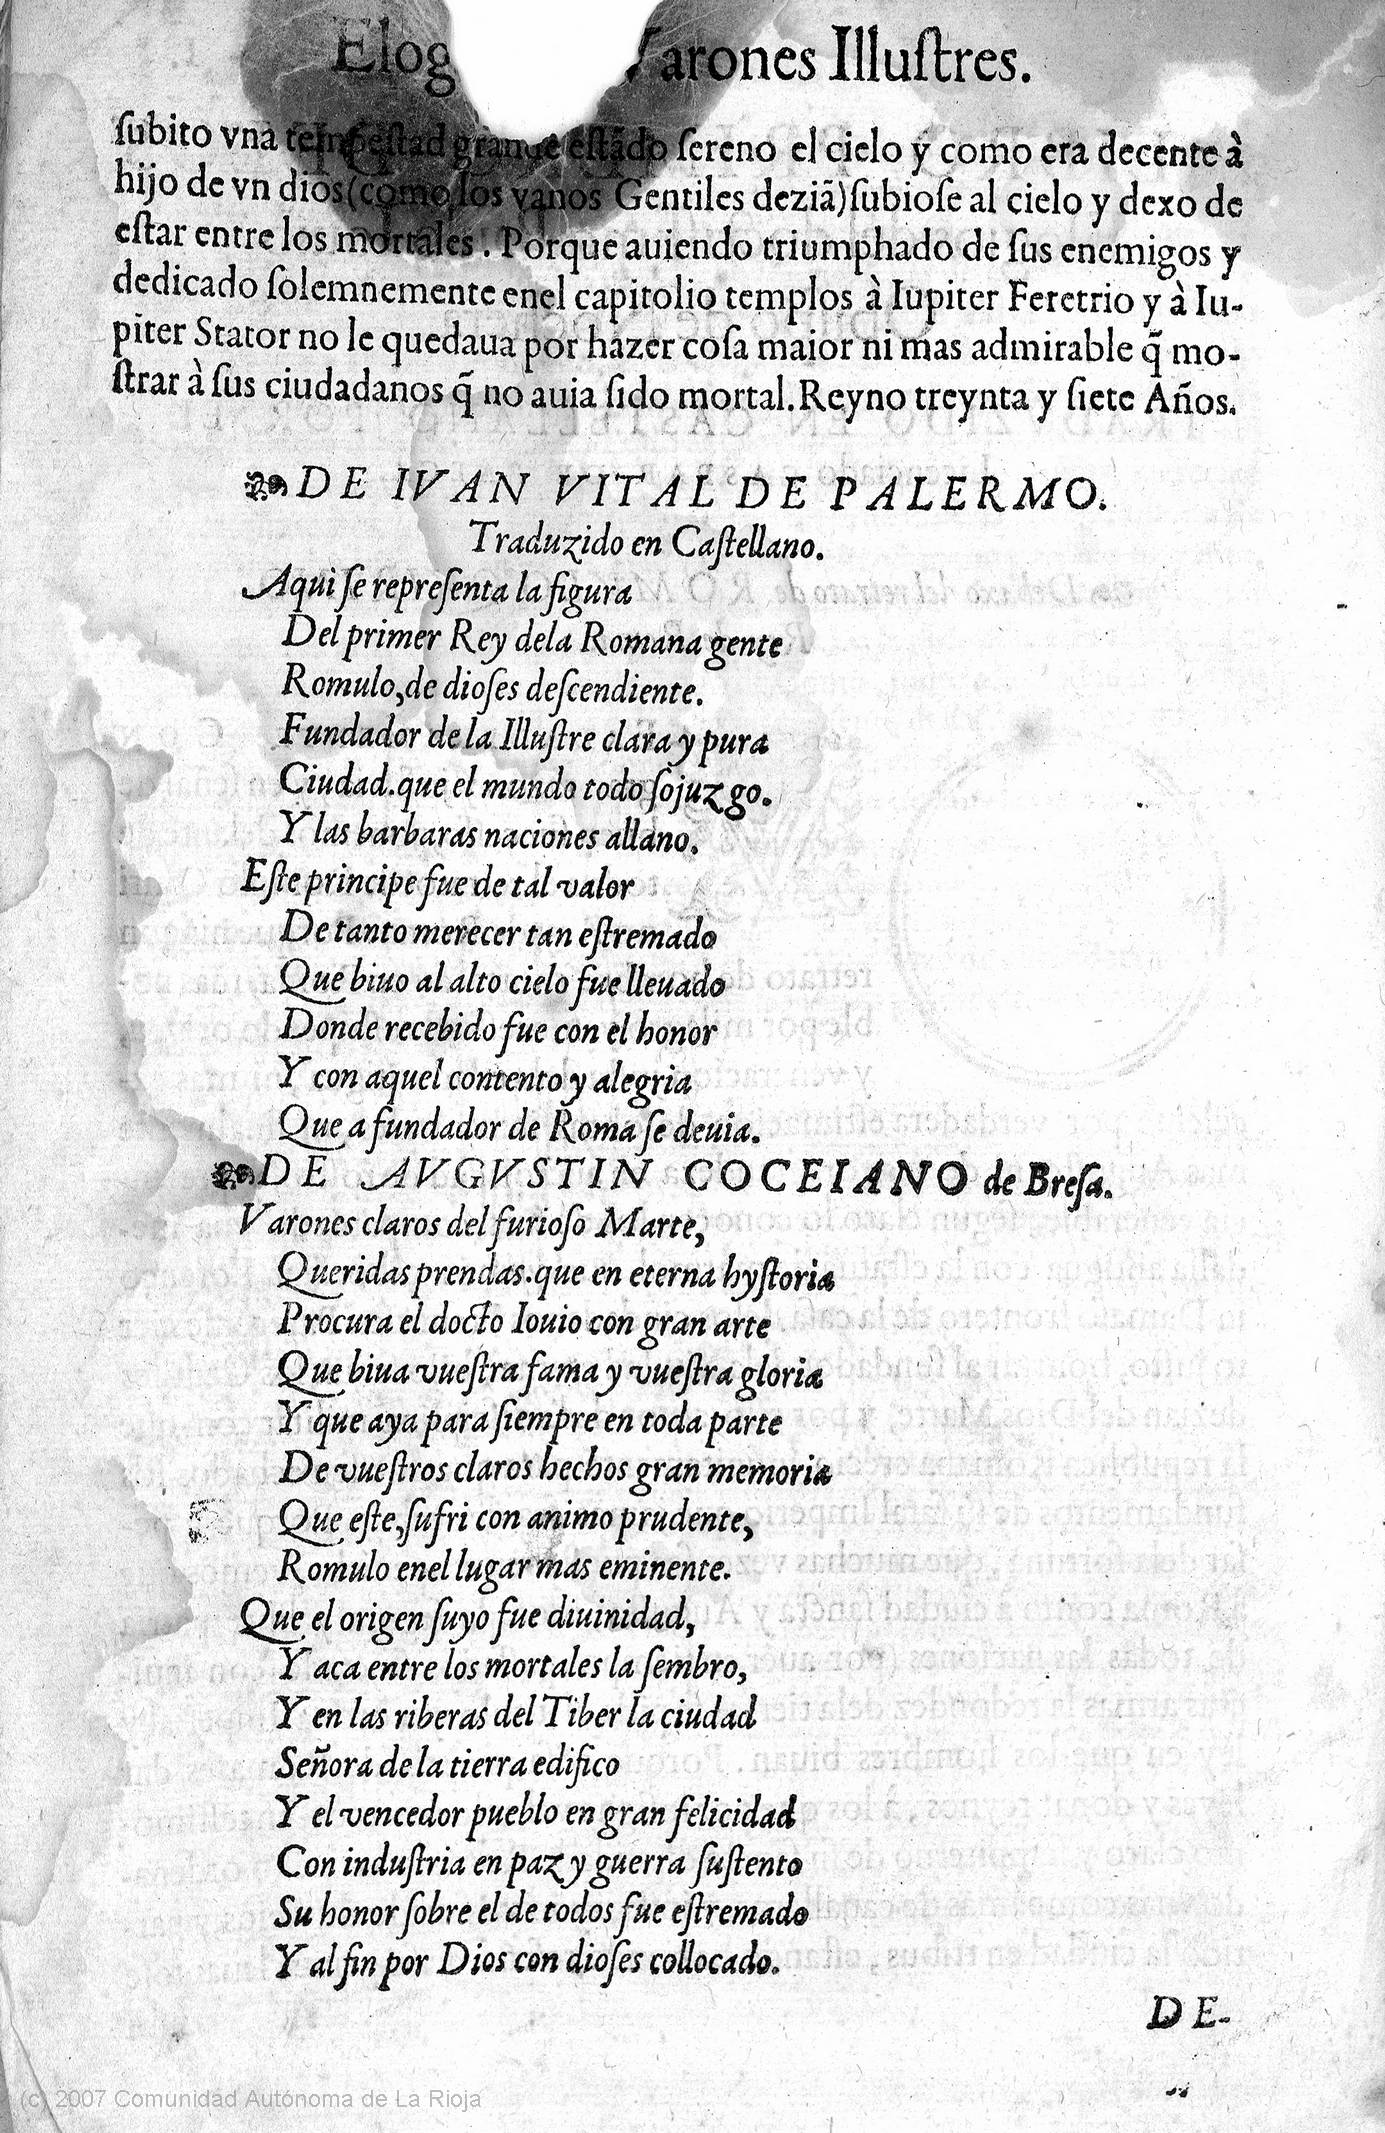 Elog Varones Illuſtres.
ſubito vna tempeſtad grande eſtãdo ſereno el cielo y como era decente à
hijo de vn dios(como los vanos Gentiles deziã)ſubioſe al cielo y dexo de
eſtar entre los mortales. Porque auiendo triumphado de ſus enemigos y
dedicado ſolemnemente enel capitolio templos à Iupiter Feretrio y à Iu-
piter Stator no le quedaua por hazer coſa maior ni mas admirable q̃ mo-
ſtrar à ſus ciudadanos q̃ no auia ſido mortal. Reyno treynta y ſiete Años.
DE IVAN VITAL DE PALERMO.
Traduzido en Caſtellano.
Aqui ſe repreſenta la figura
Del primer Rey dela Romana gente
Romulo,de dioſes deſcendiente.
Fundador de la Illuſtre clara y pura
Ciudad.que el mundo todo ſojuzgo.
Y las barbaras naciones allano.
Eſte principe fue de tal valor
De tanto merecer tan eſtremado
Que biuo al alto cielo fue lleuado
Donde recebido fue con el honor
Y con aquel contento y alegria
Que a fundador de Roma ſe deuia.
DE AVGVSTIN COCEIANO de Breſa.
Varones claros del furioſo Marte,
Queridas prendas.que en eterna hyſtoria
Procura el docto Iouio con gran arte
Que biua vueſtra fama y vueſtra gloria
Y que aya para ſiempre en toda parte
De vueſtros claros hechos gran memoria
Que eſte,ſufri con animo prudente,
Romulo enel lugar mas eminente.
Que el origen ſuyo fue diuinidad,
Y aca entre los mortales la ſembro,
Y en las riberas del Tiber la ciudad
Señora de la tierra edifico
Y el vencedor pueblo en gran felicidad
Con induſtria en paz y guerra ſuſtento
Su honor ſobre el de todos fue eſtremado
Y al fin por Dios con dioſes collocado.
DE-
(c) 2007 Comunidad Autónoma de La Rioja